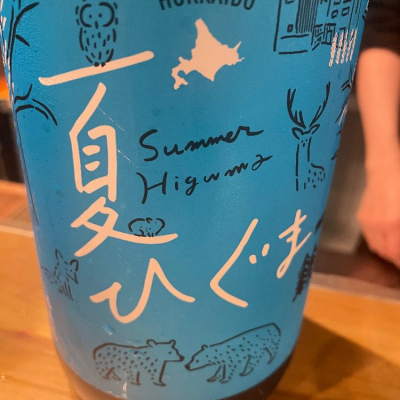 HOKKAIDO
夏
Summer
Higuma
ひぐま